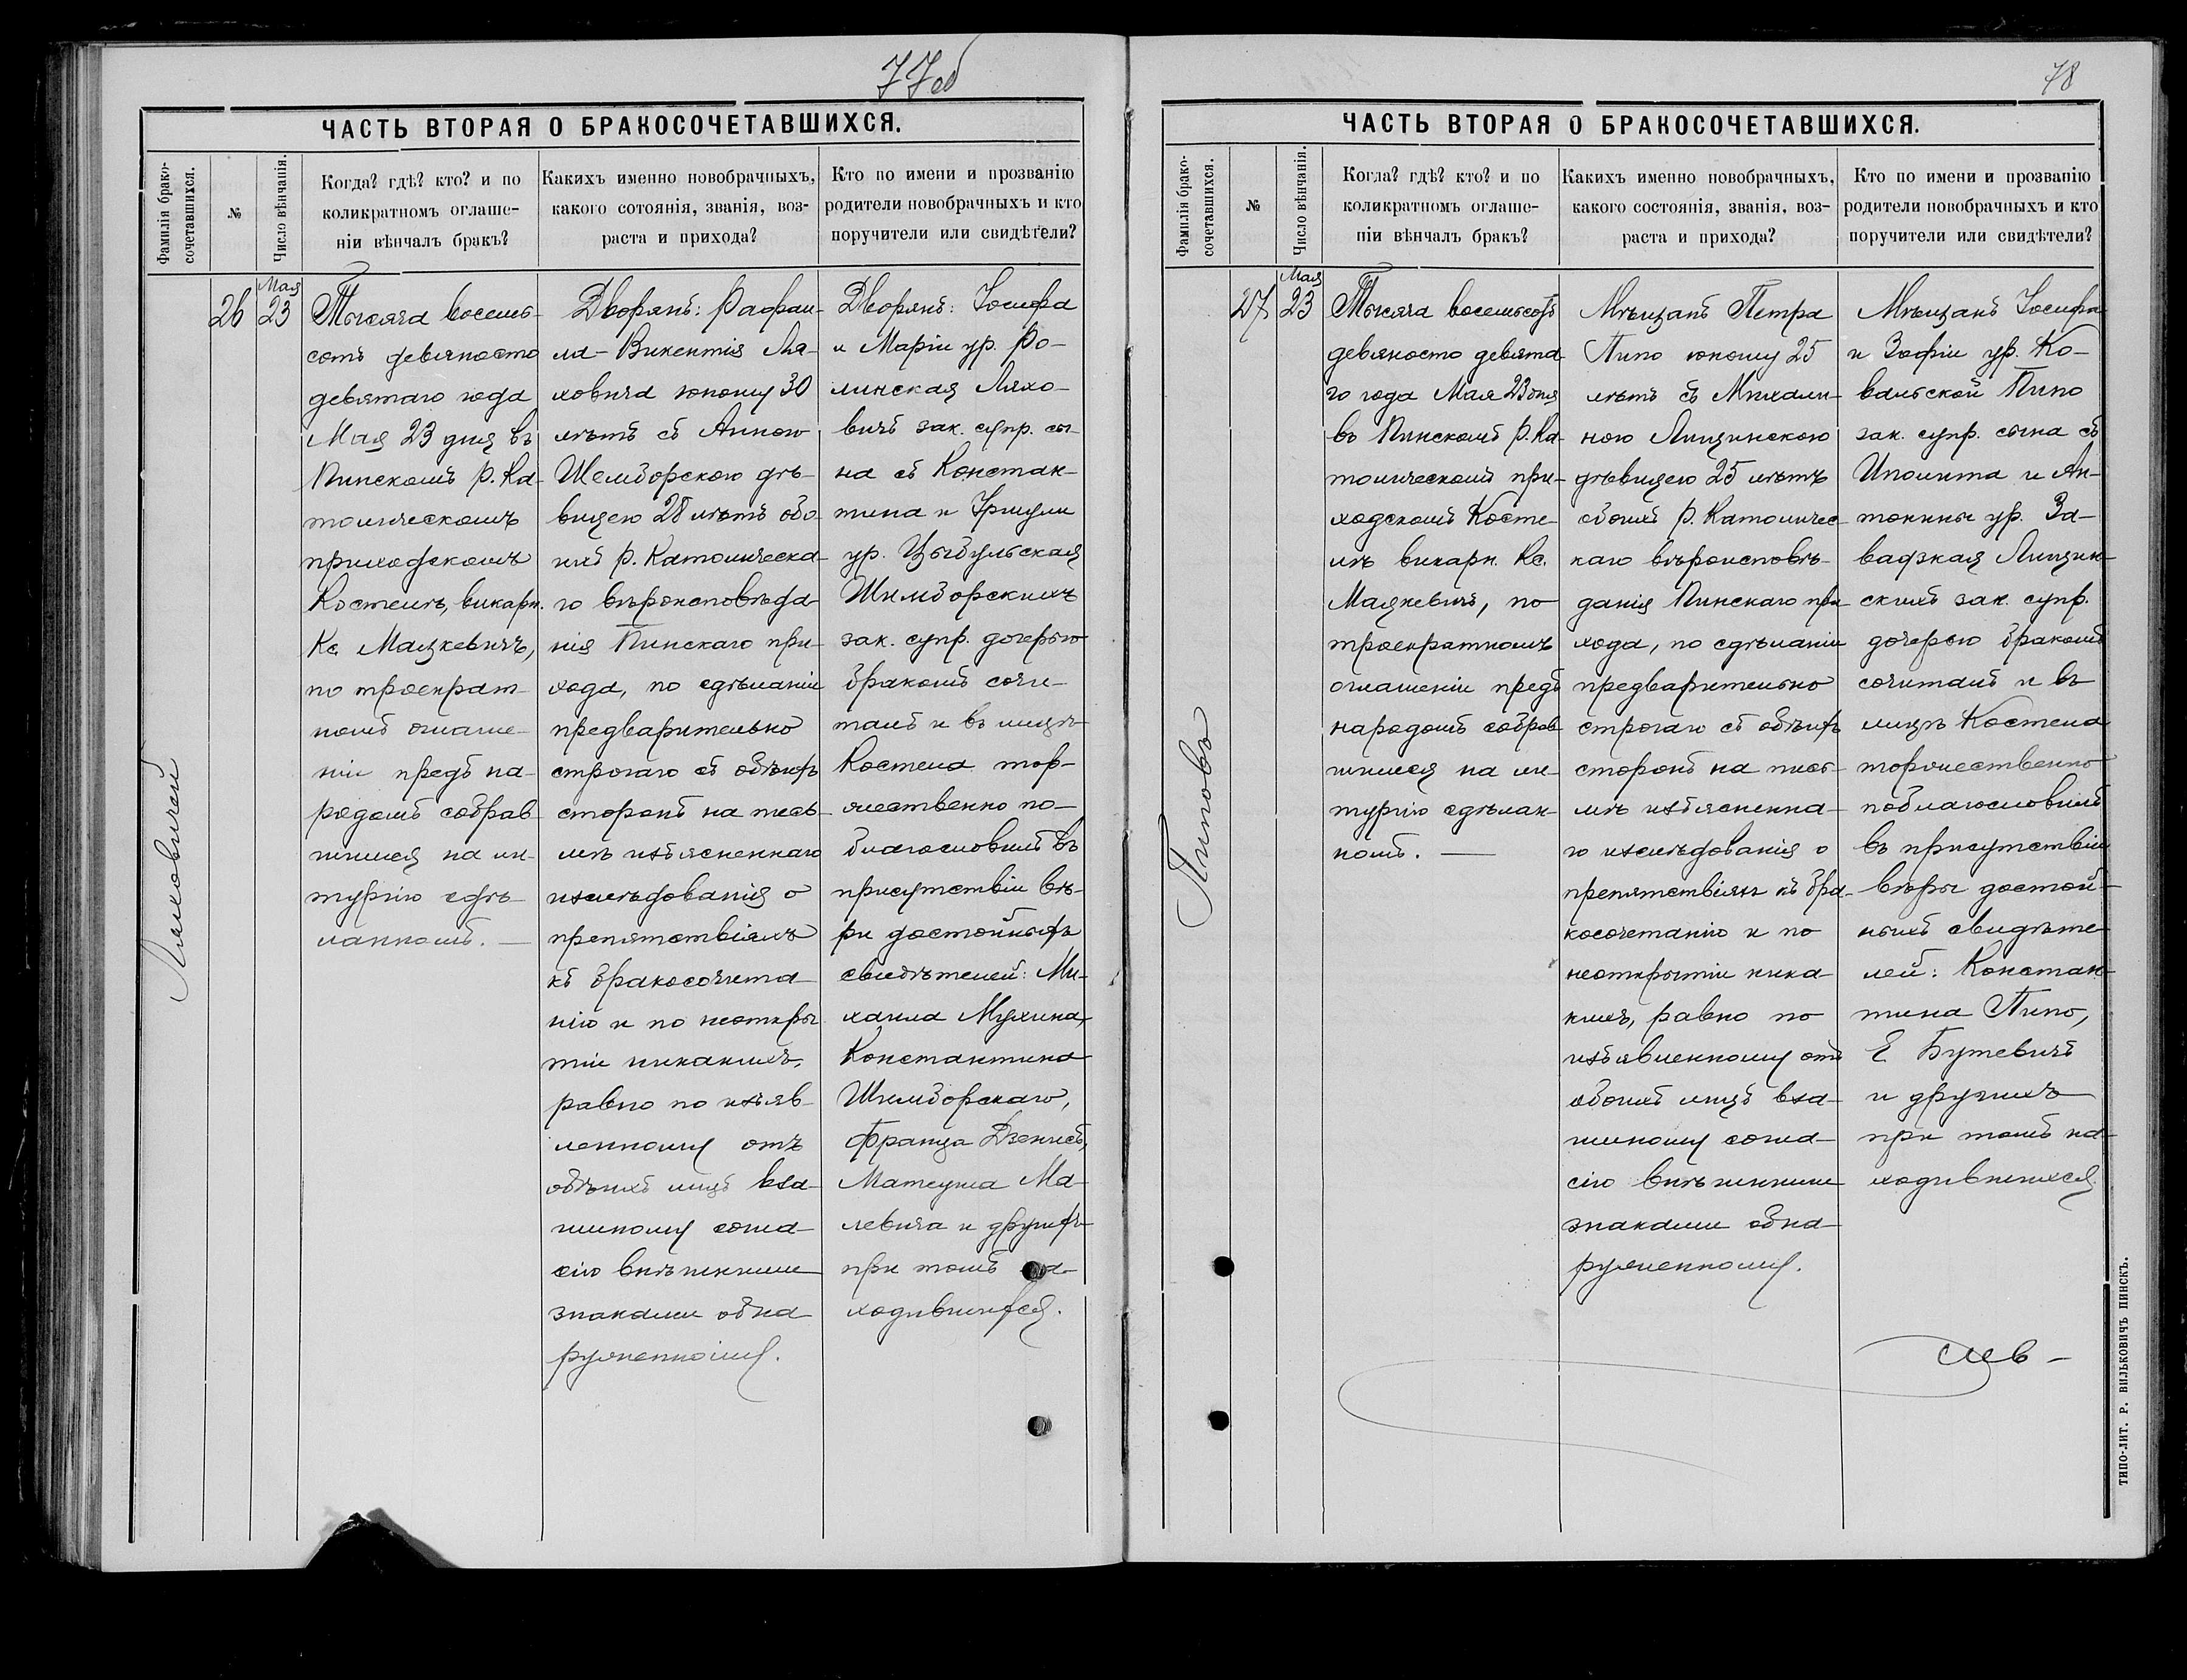 77об
ЧАСТЬ ВТОРАЯ О БРАКОСОЧЕТАВШИХСЯ.
Фамилія брако-
сочетавшихся.
№
Число вѣнчанія.
Когда? гдѣ? кто? и по
коликратномъ оглаше-
ніи вѣнчалъ бракъ?
Какихъ именно новобрачныхъ,
какого сотоянія, званія, воз-
раста и прихода?
Кто по имени и прозванію
родители новобрачныхъ и кто
поручители или свидѣтели?
Ляховичей
26
Мая
23
Тысяча восемь-
сотъ девяносто
девятаго года
Мая 23 дня въ
Пинскомъ Р. Ка-
толическомъ
приходскомъ
Костелѣ, викарн.
Кс. Мацкевичъ,
по троекрат-
номъ оглаше-
ніи предъ на-
родомъ собрав-
шимся на ли-
тургію сдѣ-
ланномъ. —
Дворянъ: Рафаи-
ла-Викентія Ля-
ховича юношу 30
лѣтъ съ Анною
Шемборскою дѣ-
вицею 28 лѣтъ обо-
ихъ Р. Католическа-
го вѣроисповѣда-
нія Пинскаго при-
хода, по сдѣланіи
предварительно
строгаго съ обѣихъ
сторонъ на пись-
мѣ изъясненнаго
изслѣдованія о
препятствіяхъ
къ бракосочета-
нію и по неоткры-
тіи никакихъ,
равно по изъяв-
ленному отъ
обѣихъ лицъ вза-
имному согла-
сію внѣшними
знаками обна-
руженному.
Дворянъ: Іосифа
и Маріи ур. Ро-
линская Ляхо-
вичъ зак. супр. сы-
на съ Констан-
тина и Уршули
ур. Цыбульская
Шимборскихъ
зак. супр. дочерью
бракомъ соче-
талъ и въ лицѣ
Костела тор-
жественно по-
благословилъ въ
присутствіи вѣ-
ры достойныхъ
свидѣтелей: Ми-
хаила Мухина,
Константина
Шимборскаго,
Франца Дзенисъ,
Матеуша Ма-
левича и другихъ
при томъ на-
ходившихся.
78
ЧАСТЬ ВТОРАЯ О БРАКОСОЧЕТАВШИХСЯ.
Фамилія брако-
сочетавшихся.
№
Число вѣнчанія.
Когда? гдѣ? кто? и по
коликратномъ оглаше-
ніи вѣнчалъ бракъ?
Какихъ именно новобрачныхъ,
какого состоянія, званія, воз-
раста и прихода?
Кто по имени и прозванію
родители новобрачныхъ и кто
поручители или свидѣтели?
Пиповъ
27
Мая
23
Тысяча восемьсотъ
девяносто девята-
го года Мая 23 дня
въ Пинскомъ Р. Ка-
толическомъ при-
ходскомъ Косте-
лѣ викарн. Кс.
Мацкевичъ, по
троекратномъ
оглашеніи предъ
народомъ собрав-
шимся на ли-
тургію сдѣлан-
номъ. —
Мѣщанъ Петра
Пипо юношу 25
лѣтъ съ Михали-
ною Лищинскою
дѣвицею 25 лѣтъ
обоихъ Р. Католичес-
каго вѣроисповѣ-
данія Пинскаго при-
хода, по сдѣланіи
предварительно
строгаго съ обѣихъ
сторонъ на пись-
мѣ изъясненна-
го изслѣдованія о
препятствіяхъ къ бра-
косочетанію и по
неоткрытіи ника-
кихъ, равно по
изъявленному отъ
обоихъ лицъ вза-
имному согла-
сію внѣшними
знаками обна-
руженному.
Мѣщанъ Іосифа
и Зофіи ур. Ко-
вальской Пипо
зак. супр. сына съ
Иполита и Ан-
тонины ур. За-
вадзкая Лищин-
скихъ зак. супр.
дочерью бракомъ
сочиталъ и въ
лицѣ Костела
торжественно
поблагословилъ
въ присутствіи
вѣры достой-
ныхъ свидѣте-
лей: Констан-
тина Пипо,
Е Бутевичъ
и другихъ
при томъ на-
ходившихся.
ТИПО-ЛИТ. Р. ВИЛЬКОВИЧЪ ПИНСКЪ.